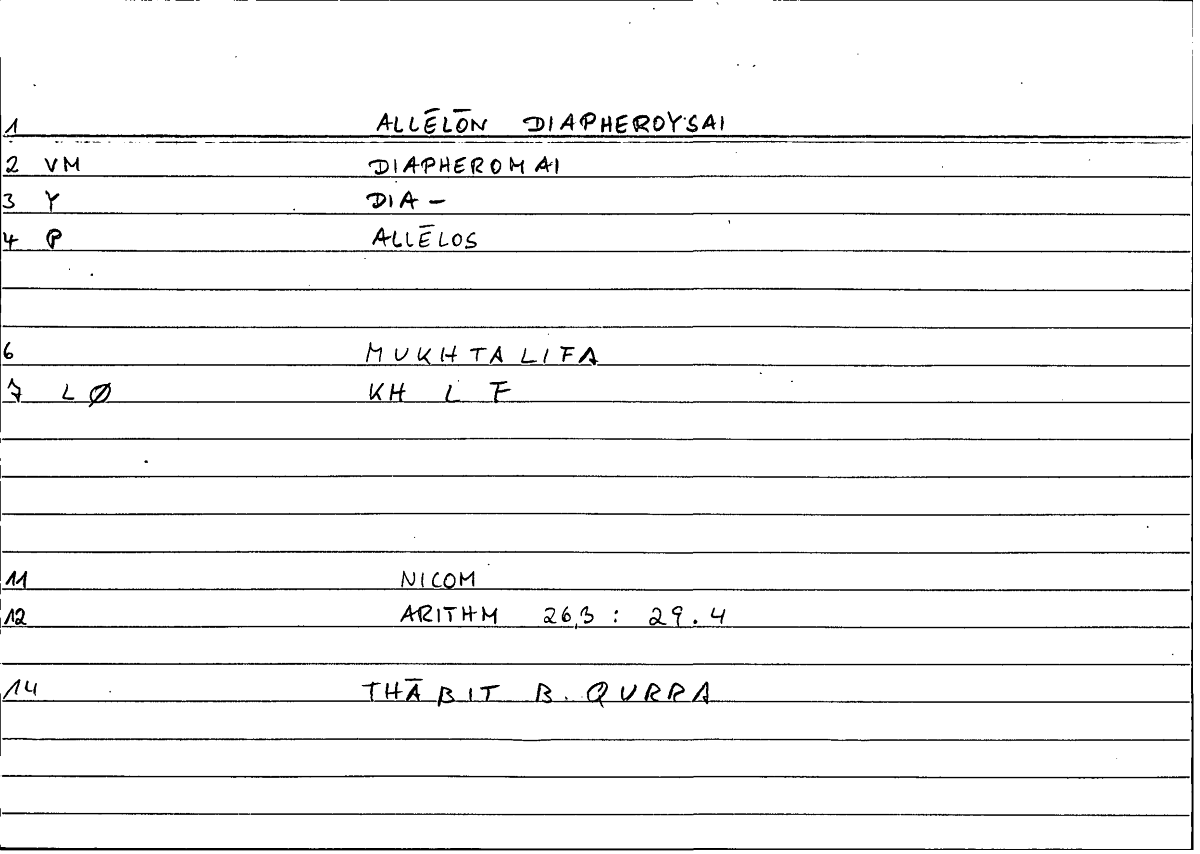 1 ALLĒLŌN DIAPHEROYSAI
2 VM DIAPHEROMAI
3 Y DIA-
4 P ALLĒLOS
6 MUKHTALIFA
7 LØ KH L F
11 NICOM
12 ARITHM 26,3 : 29.4
14 THĀBIT B. QURRA